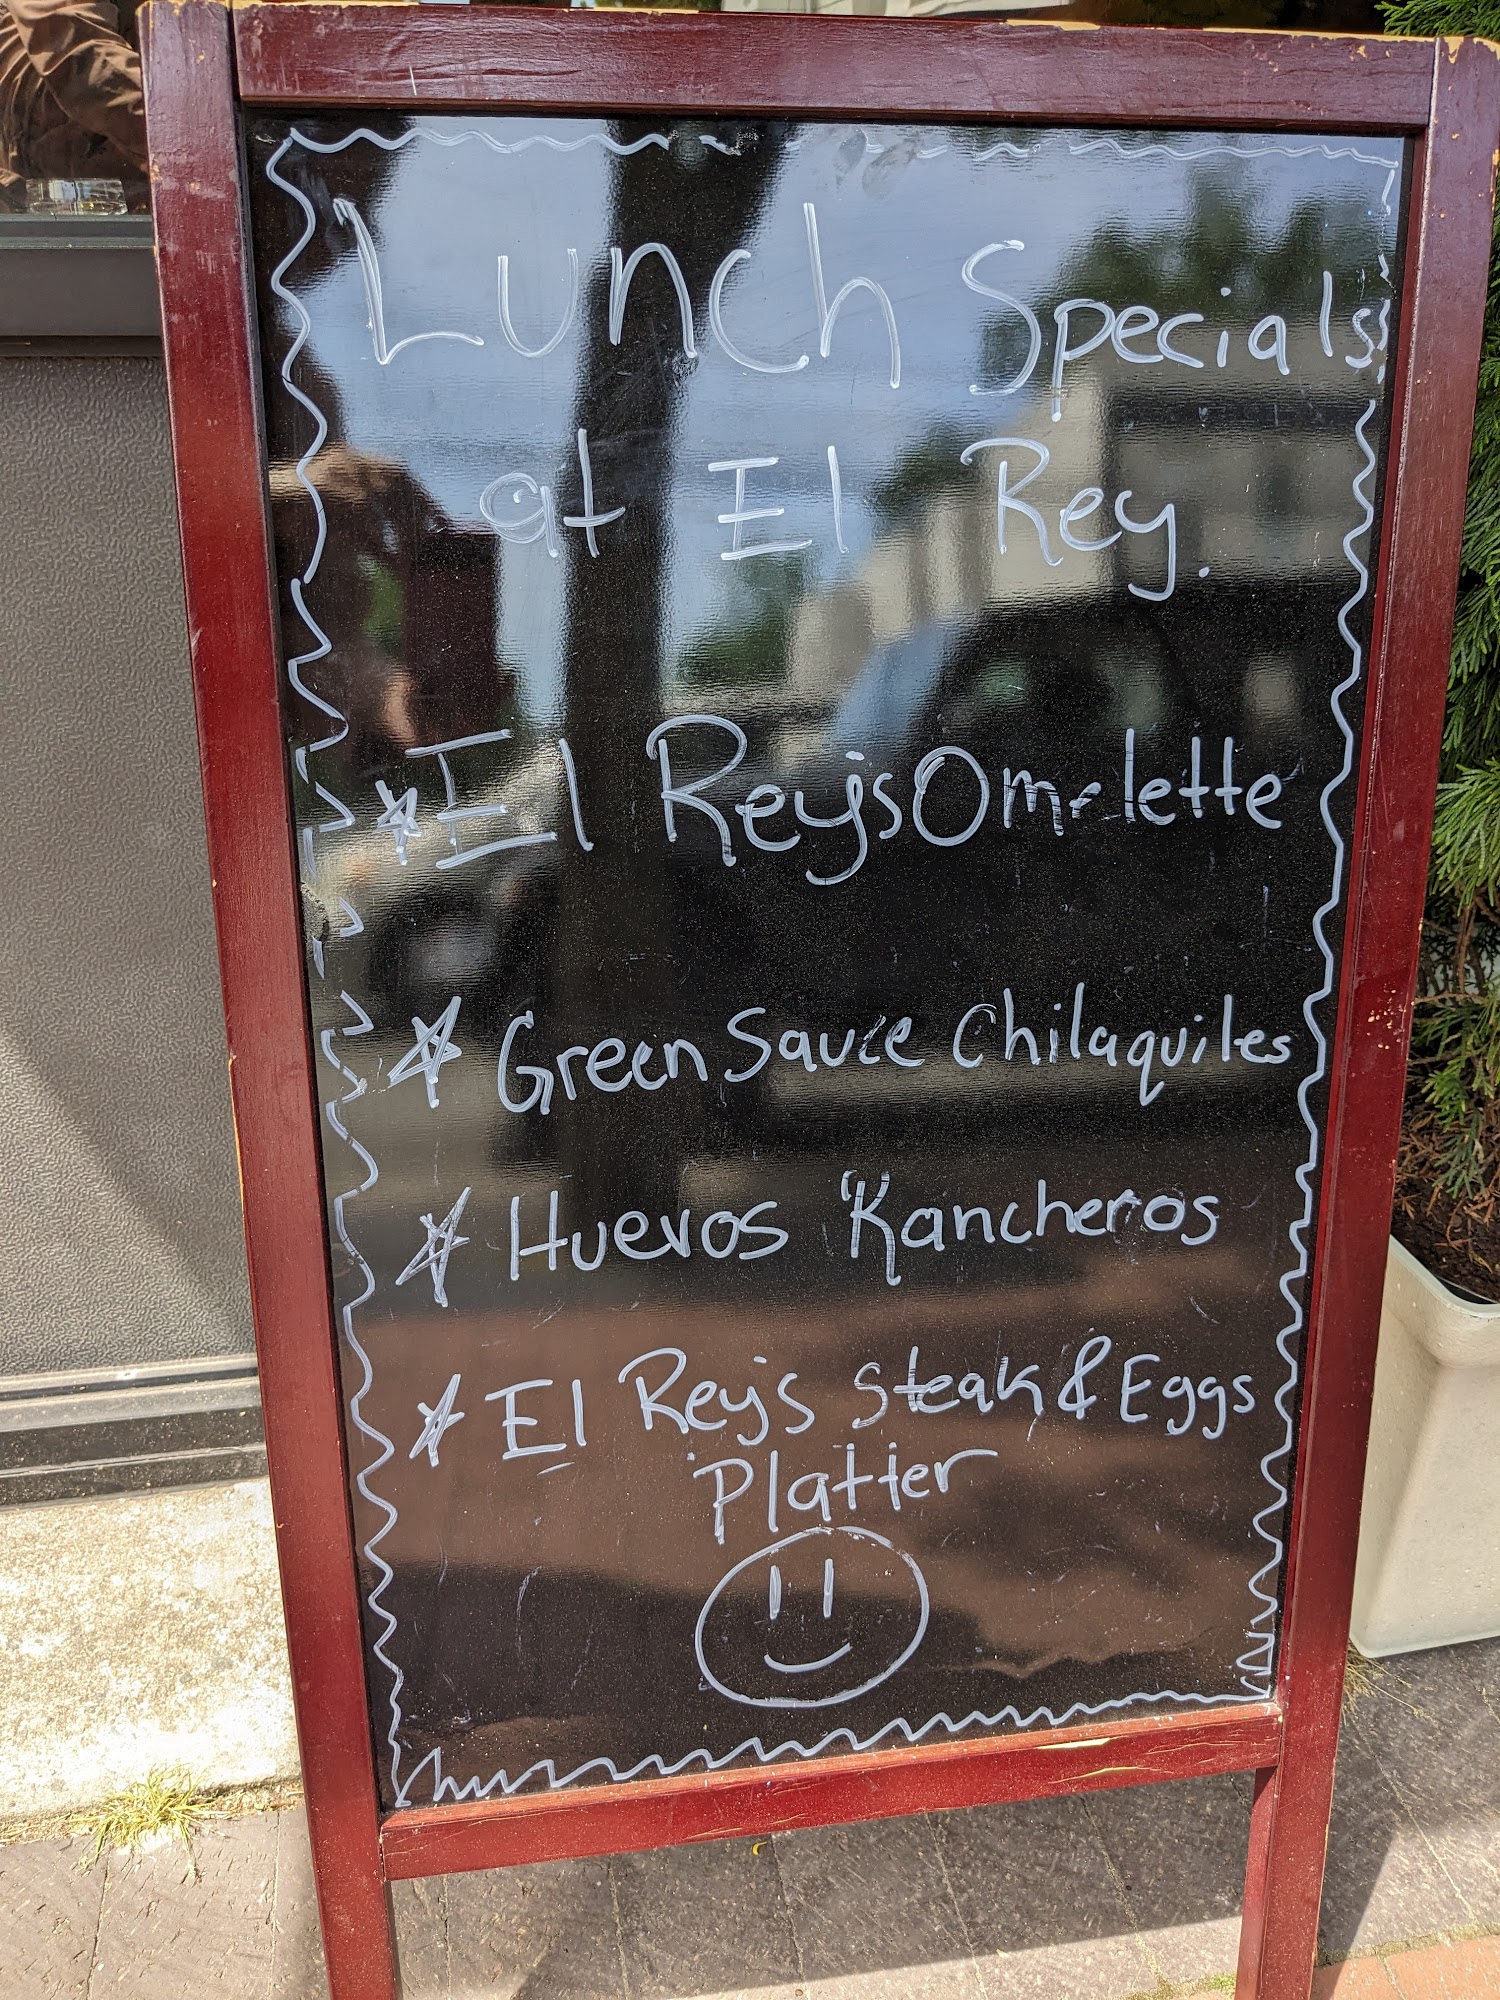 Lunch Specials
at El Rey.
El Rey's Omelette
Green Sauce Chilaquiles
Huevos "Rancheros
El Rey's Steak & Eggs
Platter